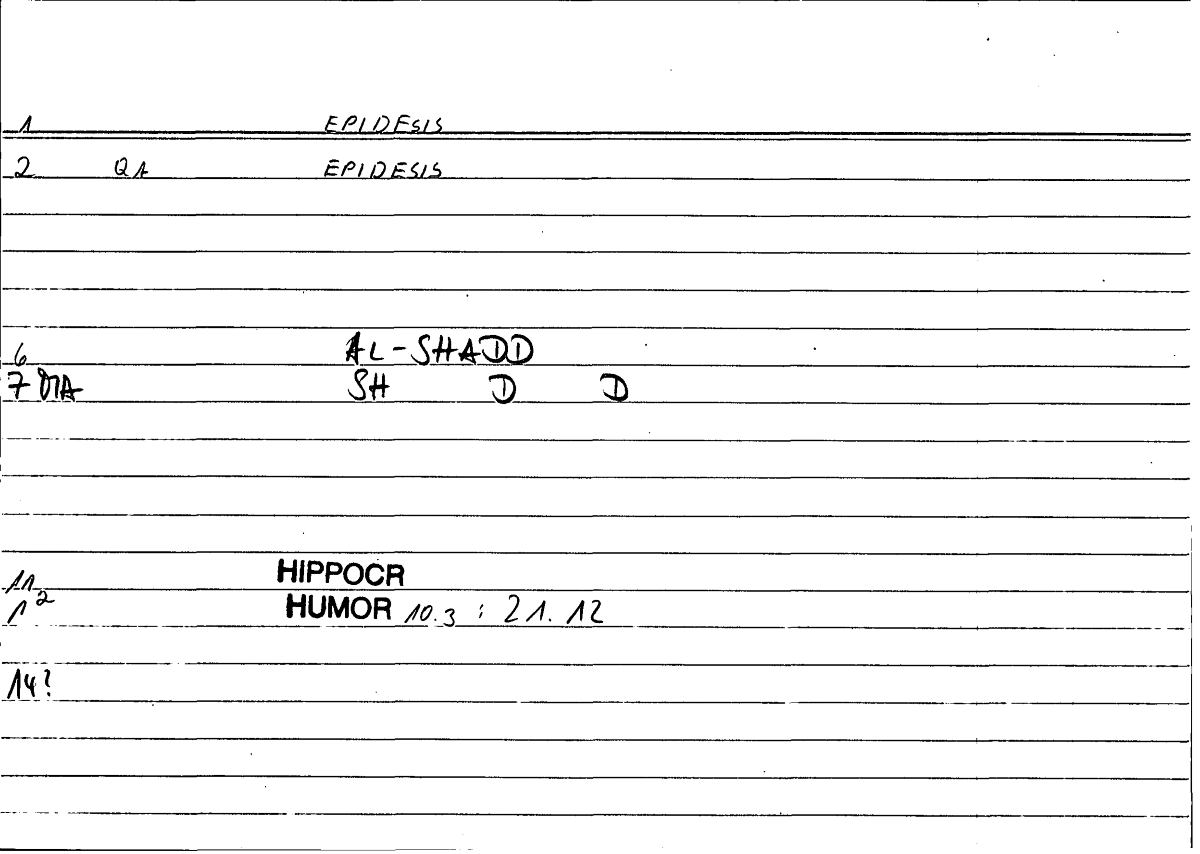 1 EPIDESIS
2 QA EPIDESIS
6 AL-SHADD
7 SH D D
11 HIPPOCR
1² HUMOR 10.3 : 21.12
14?